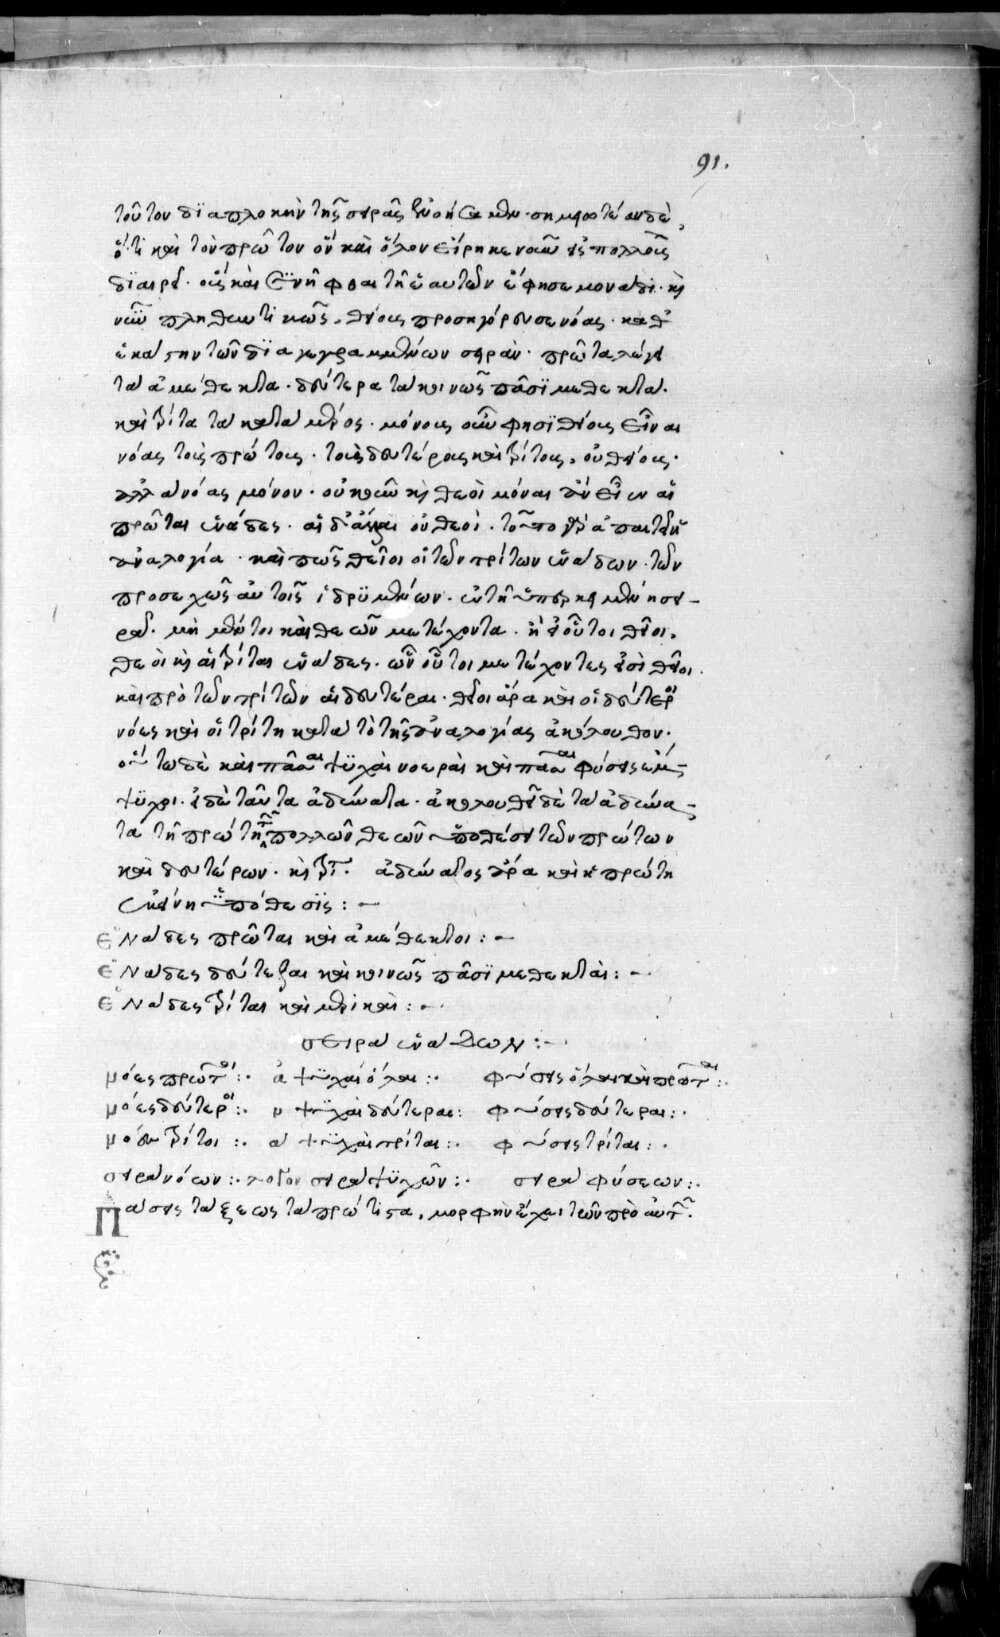 91.
τοῦτον διαπλοκὴν τῆς σειρᾶς σημειωτέον δὲ,
ὅτι καὶ τὸν πρῶτον ὃν καὶ ὅλον εἴρηκε νοῦν εἰς πολλοὺς
διαιρεῖ· οὓς καὶ ἑαυτῶν μονάδι· καὶ
νοῦν πληθυντικῶς, θείους προσηγόρευσε νόας· καθ'
ἑκάστην τῶν διαγεγραμμένων σειρὰν· πρῶτα λέγει
τὰ ἀμέθεκτα· δεύτερα τὰ κοινῶς πᾶσι μεθεκτά·
καὶ τρίτα τὰ κατὰ μέρος· μόνους οὖν φησὶ θείους εἶναι
νόας τοὺς πρώτους· τοὺς δευτέρους καὶ τρίτους, οὐ θείους·
ἀλλὰ νόας μόνον· οὐκοῦν καὶ θεοὶ μόναι ἂν εἶεν αἱ
πρῶται ἑνάδες· αἱ δ' ἄλλαι οὐ θεοί· τοῦτο γὰρ ἀπαιτεῖ ἡ
ἀναλογία· καὶ πῶς θεῖοι οἱ τῶν τρίτων ἑνάδων· τῶν
προσεχῶς αὐτοῖς ἱδρυμένων· ἐν τῇ ὑπερκειμένῃ σει-
ρᾷ· μὴ μέντοι καὶ θεῶν μετέχοντα· ἢ εἰ οὗτοι θεῖοι,
θεοὶ καὶ αἱ τρίται ἑνάδες· ὧν οὗτοι μετέχοντες εἰσὶ θεῖοι·
καὶ πρὸ τῶν τρίτων αἱ δευτέραι· θεῖοι ἄρα καὶ οἱ δεύτεροι
νόες καὶ οἱ τρίτοι κατὰ τὸ τῆς ἀναλογίας ἀκόλουθον·
οὕτω δὲ καὶ πᾶσαι ψυχαὶ νοεραὶ καὶ πᾶσαι φύσεις ἔμ-
ψυχοι· εἰ δὲ ταῦτα ἀδύνατα· ἀκολουθεῖ δὲ τὰ ἀδύνα-
τα τῇ πρώτῃ τῶν πολλῶν θεῶν ὑποθέσει τῶν πρώτων
καὶ δευτέρων· καὶ τρίτων· ἀδύνατος ἄρα καὶ ἡ πρώτη
ἐκείνη ὑπόθεσις :–
Ἑνάδες πρῶται καὶ ἀμέθεκτοι :–
Ἑνάδες δεύτεραι καὶ κοινῶς πᾶσι μεθεκταί :–
Ἑνάδες τρίται καὶ μερικαί :–
σειρὰ ἑνάδων :–
νόες πρῶτοι :· ψυχαὶ ὅλαι :· φύσεις ὅλαι καὶ πρῶται :·
νόες δεύτεροι :· ψυχαὶ δεύτεραι : φύσεις δεύτεραι :·
νόες τρίτοι :· ψυχαὶ τρίται :· φύσεις τρίται :·
σειρὰ νόων :· σειρὰ ψυχῶν :· σειρὰ φύσεων :·
Πάσης τάξεως τὰ πρώτιστα, μορφὴν ἔχει τῶν πρὸ αὐτῶν.